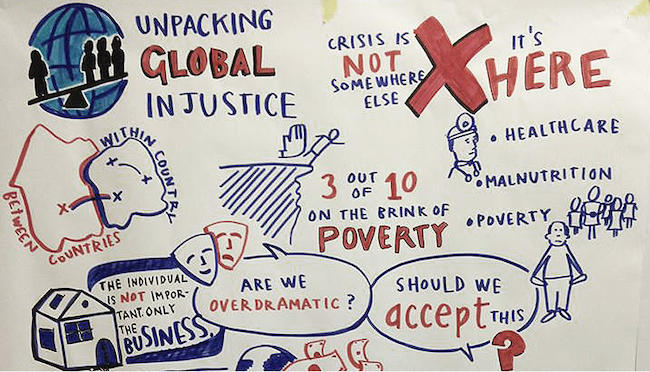 UNPACKING
GLOBAL
INJUSTICE
CRISIS IS
NOT
SOMEWHERE
ELSE
IT'S
HERE
• HEALTHCARE
• MALNUTRITION
• POVERTY
WITHIN COUNTRY
BETWEEN
COUNTRIES
3 OUT
OF 10
ON THE BRINK OF
POVERTY
THE INDIVIDUAL
IS NOT IMPOR-
TANT. ONLY
THE
BUSINESS.
ARE WE
OVERDRAMATIC?
SHOULD WE
accept THIS
?